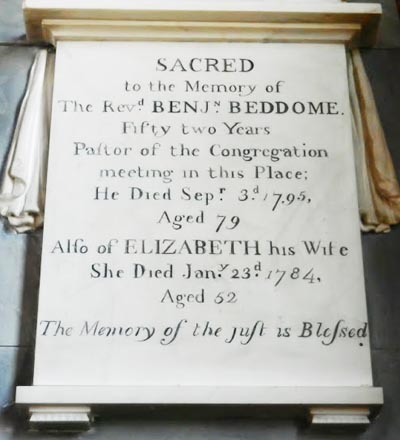 SACRED
to the Memory of
The Revᵈ BENJᴺ BEDDOME.
Fifty two Years
Paſtor of the Congregation
meeting in this Place:
He Died Sepʳ 3ᵈ 1795,
Aged 79
Alſo of ELIZABETH his Wife
She Died Janʸ 23ᵈ 1784,
Aged 52
The Memory of the juſt is Bleſsed.